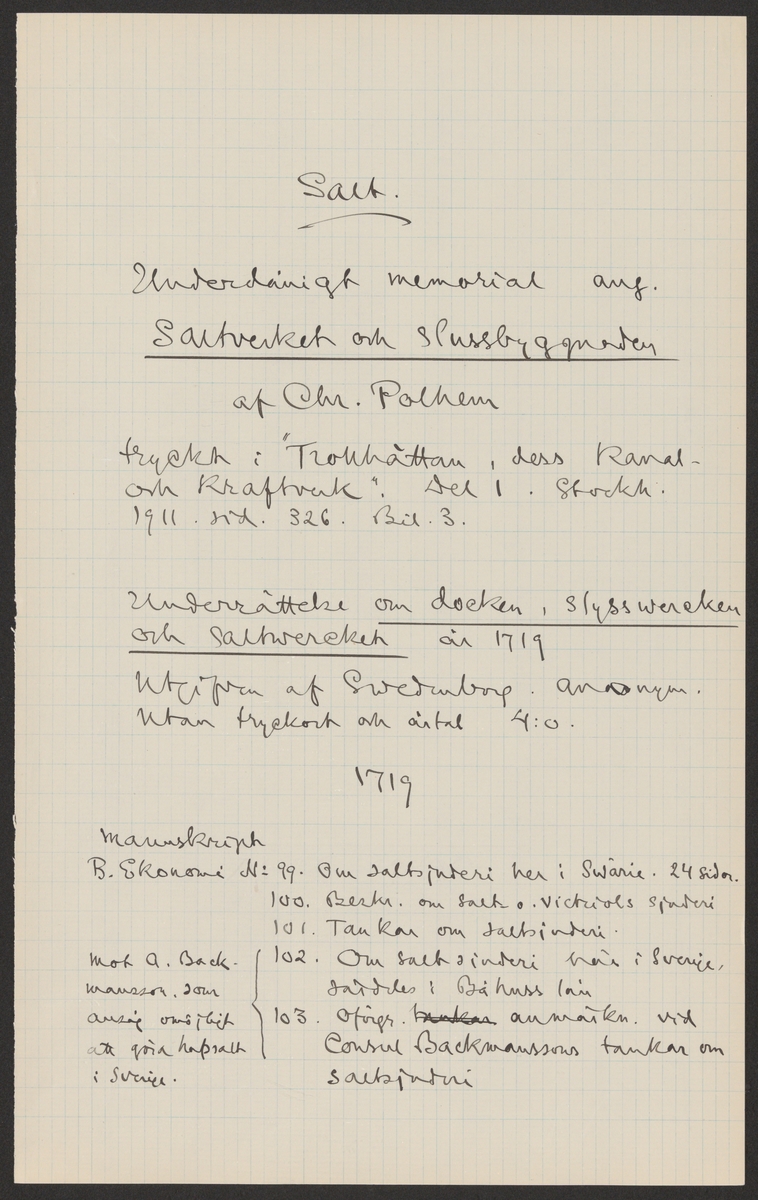 Salt.
Underdånigt memorial ang.
Saltverket och slussbyggnaden
af Chr. Polhem
tryckt i "Trollhättan, dess Kanal-
och Kraftverk". Del 1. Stockh.
1911. sid. 326. Bil. 3.
Underrättelse om docken, slysswercken
och saltwercket år 1719
Utgifven af Swedenborg. anonym.
Utan tryckort och årtal 4:o.
1719
Manuskript
B. Ekonomi N: 99. Om saltsjuderi her i Swärie. 24 sidor.
100. Beskr. om salt o. victriols sjuderi
101. Tankar om saltsjuderi.
102. Om salt sjuderi här i Sverige,
särdeles i Båhuss län
103. Oförgr. tankar anmärkn. vid
Consul Backmanssons tankar om
saltsjuderi
mot A. Back-
mansson, som
ansåg omöjligt
att göra hafssalt
i Sverige.